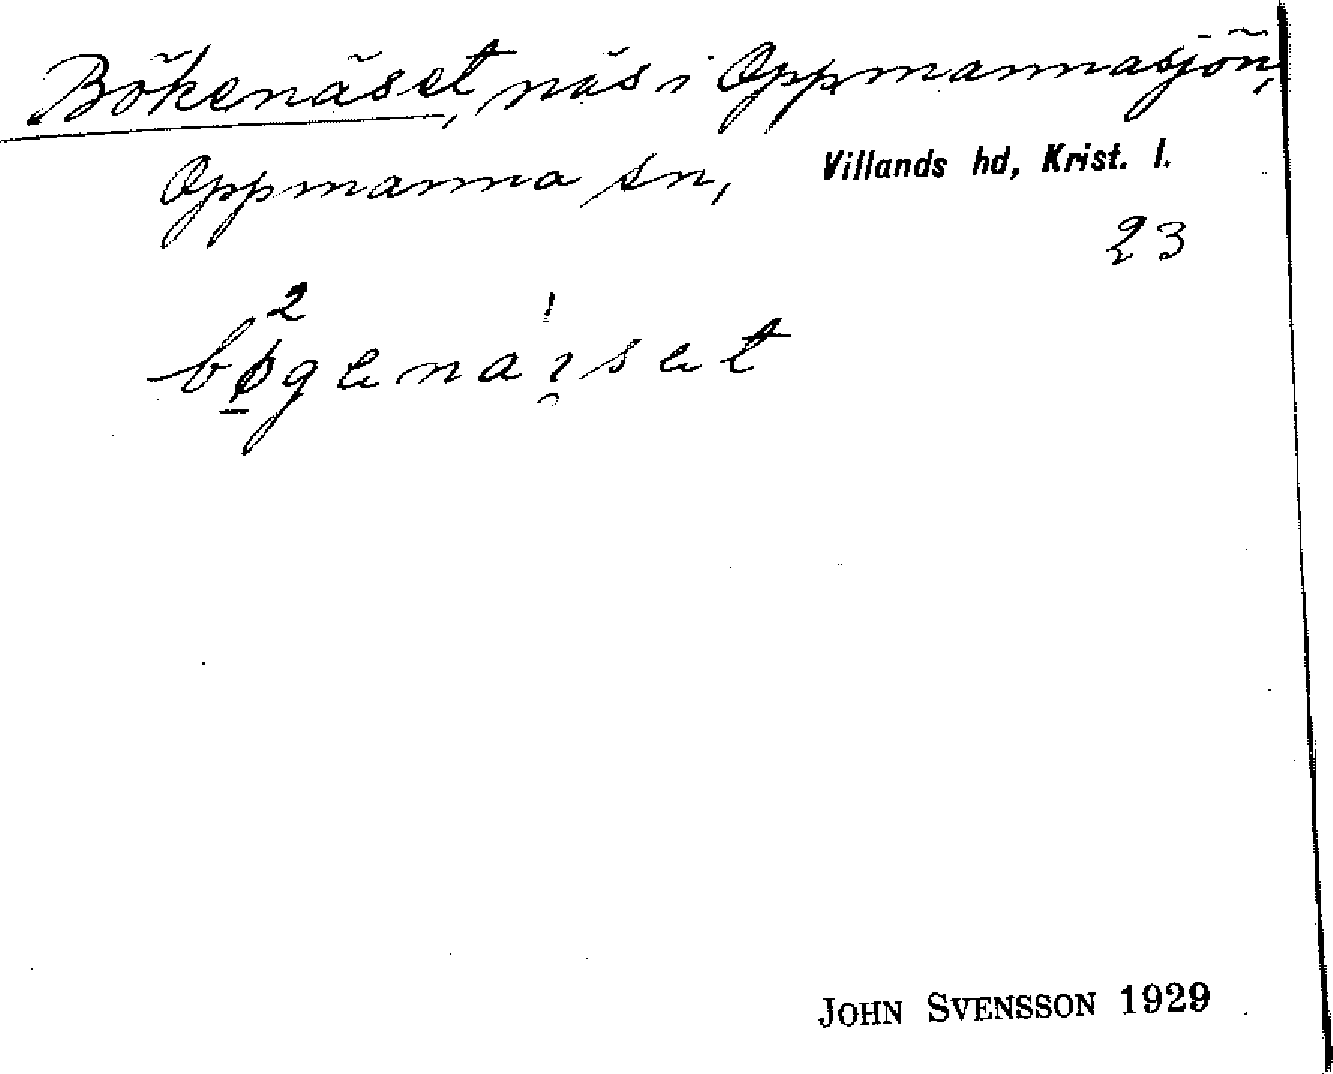 Bökenäset, näs i Oppmannasjön,
Oppmanna sn, Villands hd, Krist. l.
23
JOHN SVENSSON 1929